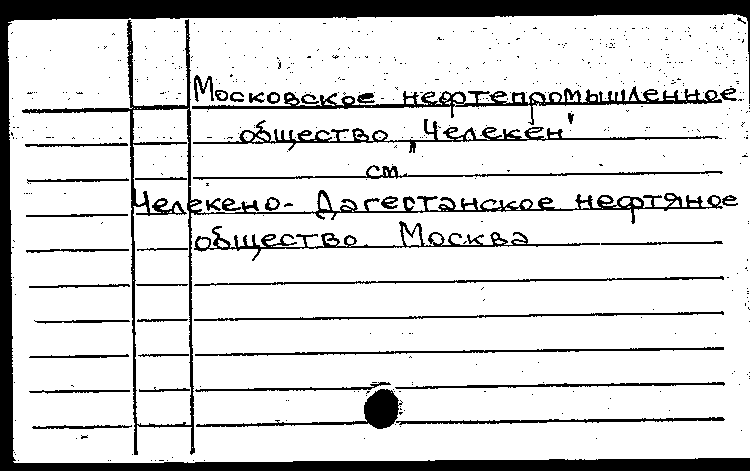 Московское нефтепромышленное
общество „Челекен"
см.
Челекено-Дагестанское нефтяное
общество. Москва